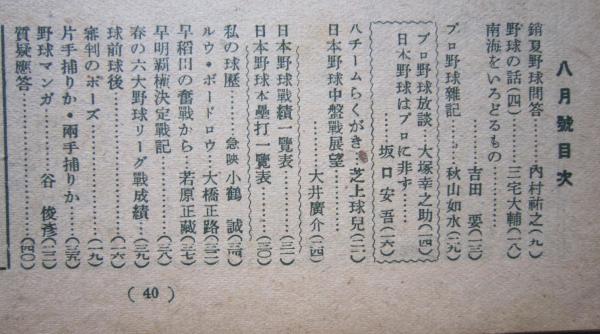 八月號目次
銷夏野球問答……內村祐之(九)
野球の話(四)……三宅大輔(一八)
南海をいろどるもの
……吉田 要(一三)
プロ野球雜記……秋山如水(二九)
プロ野球放談……大塚幸之助(一四)
日本野球はプロに非ず
……坂口安吾(一六)
八チームらくがき…芝上球兒(二一)
日本野球中盤戰展望
……大井廣介(二四)
日本野球戰績一覽表……(三一)
日本野球本壘打一覽表…(三〇)
私の球歷……急映 小鶴 誠(三四)
ルウ・ボードロウ…大橋正路(三二)
早稻田の奮戰から…若原正藏(三七)
早明覇權決定戰記……(三八)
春の六大野球リーグ戰成績…(三九)
球前球後……(一六)
審判のポーズ……(一九)
片手捕りか・兩手捕りか…(三六)
野球マンガ……谷 俊彥(三三)
質疑應答……(四〇)
(40)